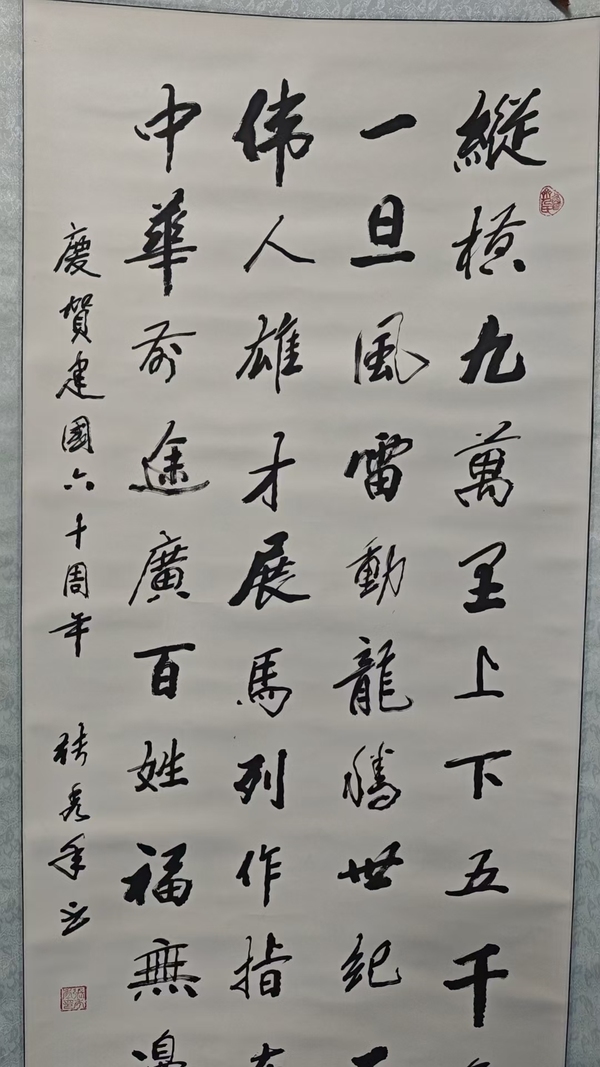 縱橫九萬里上下五千
一旦風雷動龍騰世紀
伟人雄才展馬列作指
中華前途廣百姓福無邊
慶賀建國六十周年